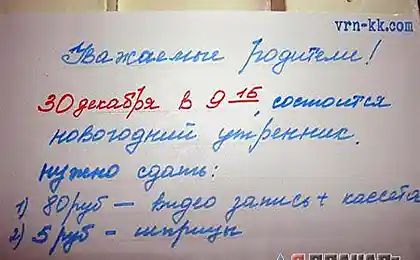 vrn-kk.com
Уважаемые родители!
30 декабря в 9 15 состоится
новогодний утренник.
нужно сдать:
1) 80 руб - видео запись + кассета
2) 5 руб - шприцы